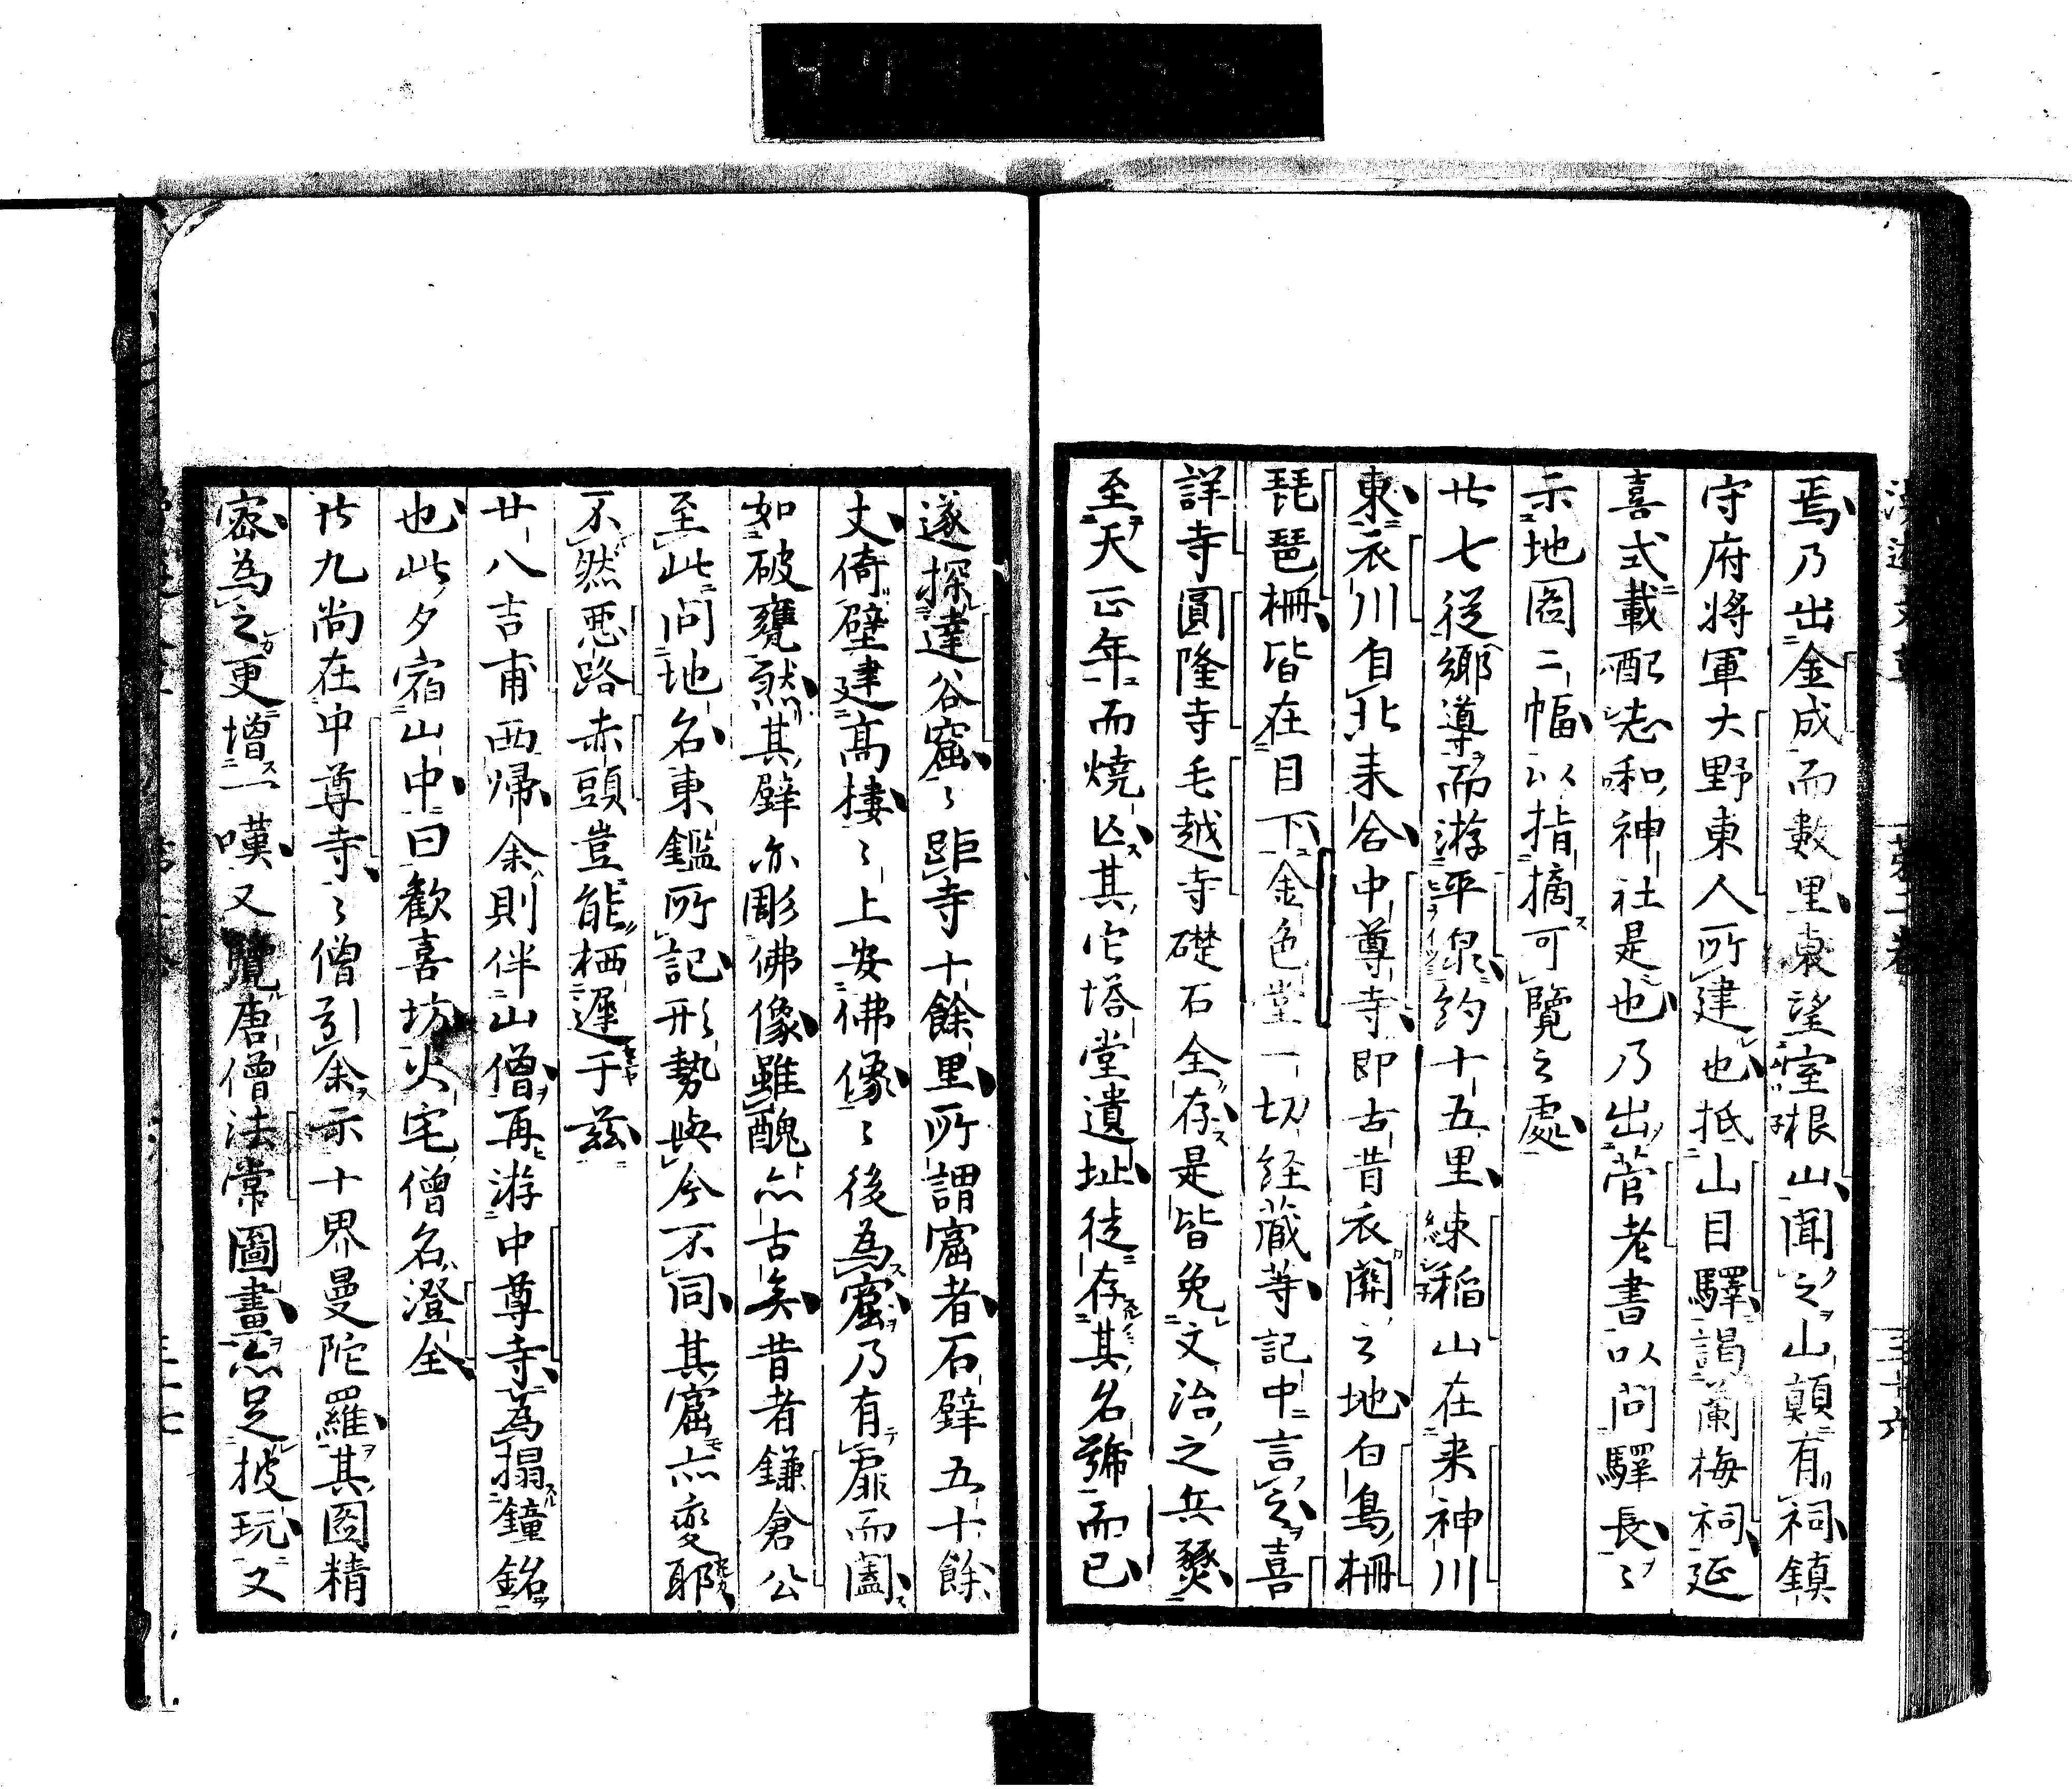 焉乃出金成而數里東望室根山聞之山顛有祠鎮
守府將軍大野東人所建也抵山目驛謁蘭梅祠延
喜式載配志和神社是也乃出菅老書以問驛長〻
示地圖二幅以指摘可覽之處
廿七從鄉導而游平泉約十五里練稻山在来神川
東衣川自北来合中尊寺即古昔衣關之地白鳥柵
琵琶柵皆在目下金色堂一切経蔵等記中言之喜
詳寺圓隆寺毛越寺礎石全存是皆免文治之兵燹
至天正年而燒亡其它塔堂遺址徒存其名號而已
遂探達谷窟〻距寺十餘里所謂窟者石壁五十餘
丈倚壁建高樓〻上安佛像〻後為窟乃有扉而闔
如破甕然其壁亦彫佛像雖醜亦古矣昔者鎌倉公
至此問地名東鑑所記形勢與今不同其窟亦変耶
不然悪路赤頭豈能栖遲于茲
廿八吉甫西帰余則伴山僧再游中尊寺為搨鐘銘
也此夕宿山中曰歡喜坊火宅僧名澄全
廿九尚在中尊寺〻僧引余示十界曼陀羅其圖精
密為之更増一嘆又覽唐僧法常圖畫亦足披玩又
三十六